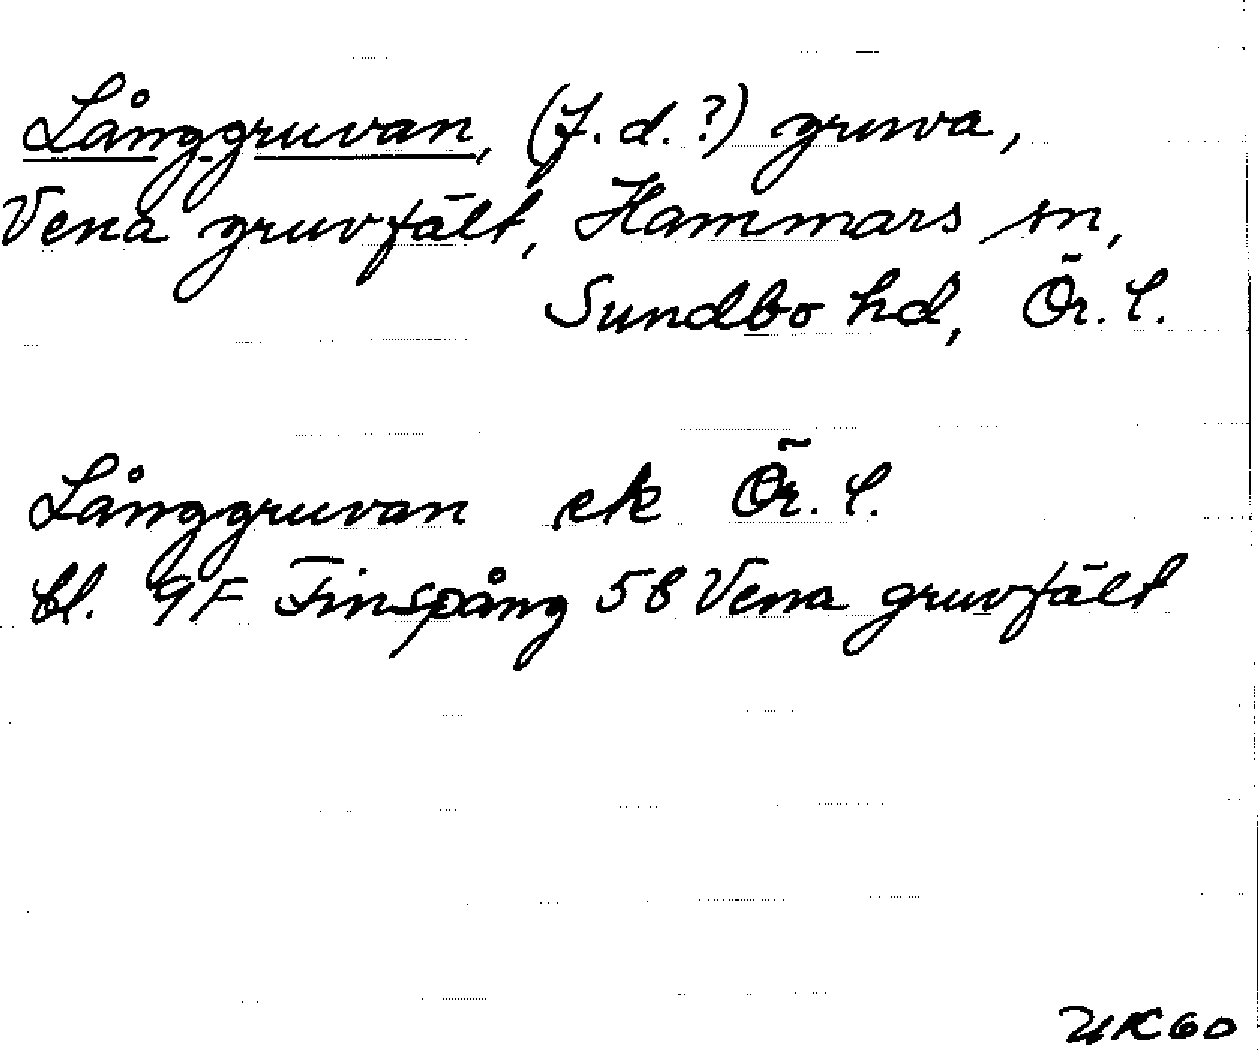 Långgruvan, (f.d.?) gruva,
Vena gruvfält, Hammars sn,
Sundbo hd, Ör. l.
Långgruvan ek Ör. l.
bl. 9F Finspång 5b Vena gruvfält
UK60